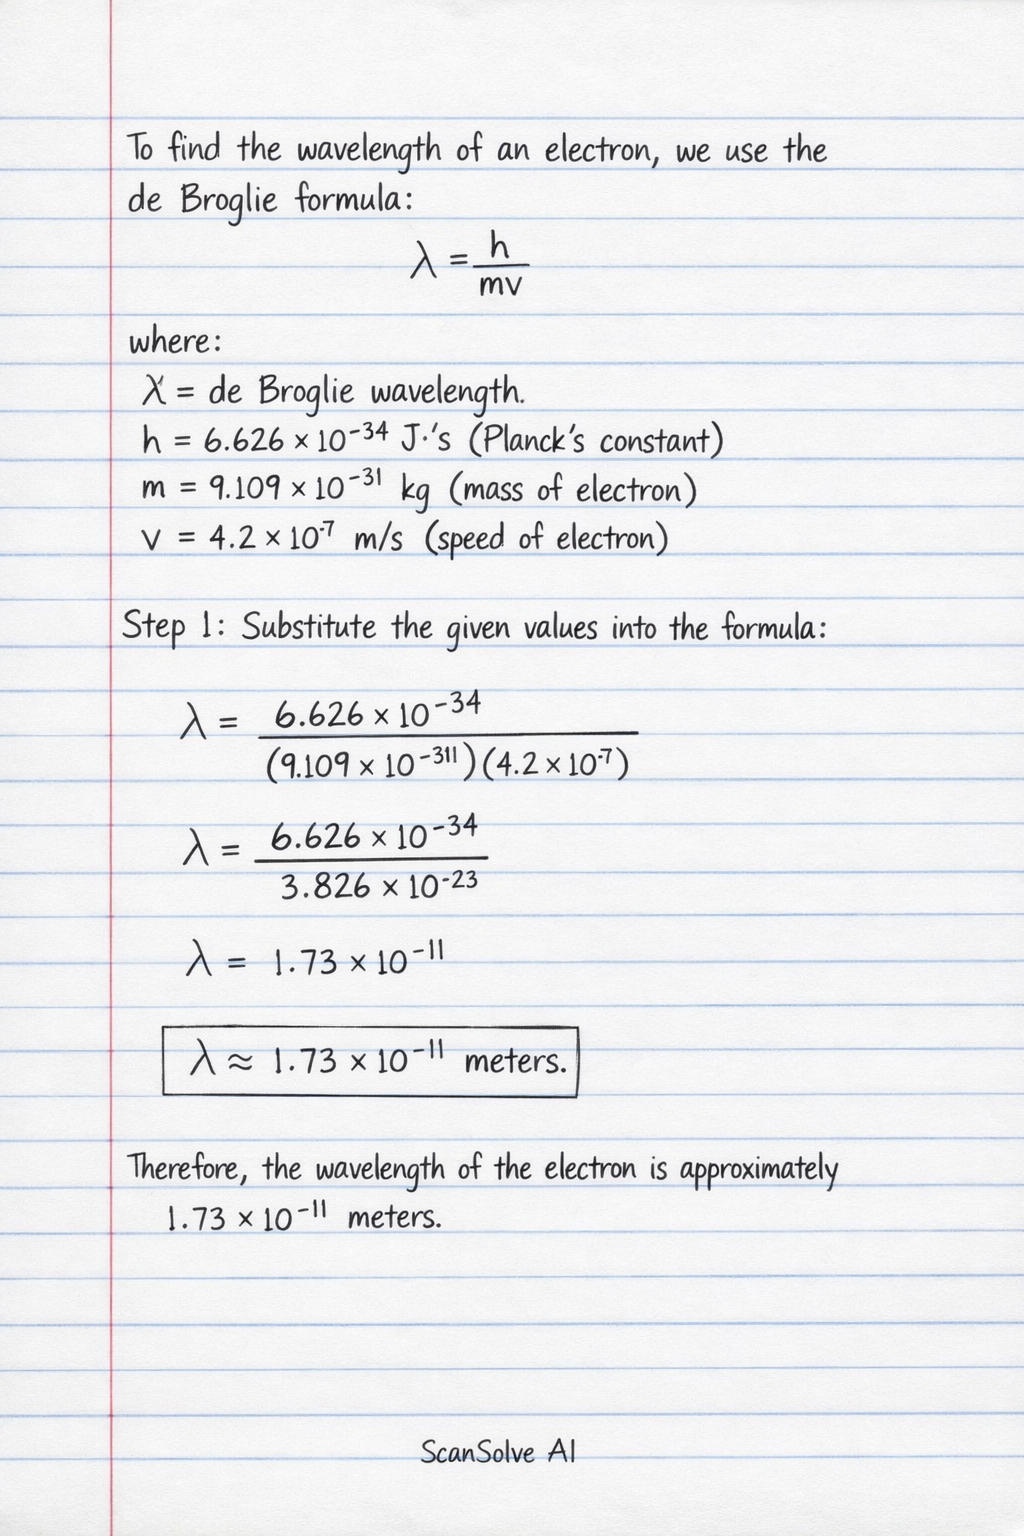 To find the wavelength of an electron, we use the
de Broglie formula:
λ = h/mv
where:
λ = de Broglie wavelength.
h = 6.626 × 10⁻³⁴ J·'s (Planck's constant)
m = 9.109 × 10⁻³¹ kg (mass of electron)
v = 4.2 × 10⁻⁷ m/s (speed of electron)
Step 1: Substitute the given values into the formula:
λ = 6.626 × 10⁻³⁴ / (9.109 × 10⁻³¹¹)(4.2 × 10⁻⁷)
λ = 6.626 × 10⁻³⁴ / 3.826 × 10⁻²³
λ = 1.73 × 10⁻¹¹
λ ≈ 1.73 × 10⁻¹¹ meters.
Therefore, the wavelength of the electron is approximately
1.73 × 10⁻¹¹ meters.
ScanSolve AI